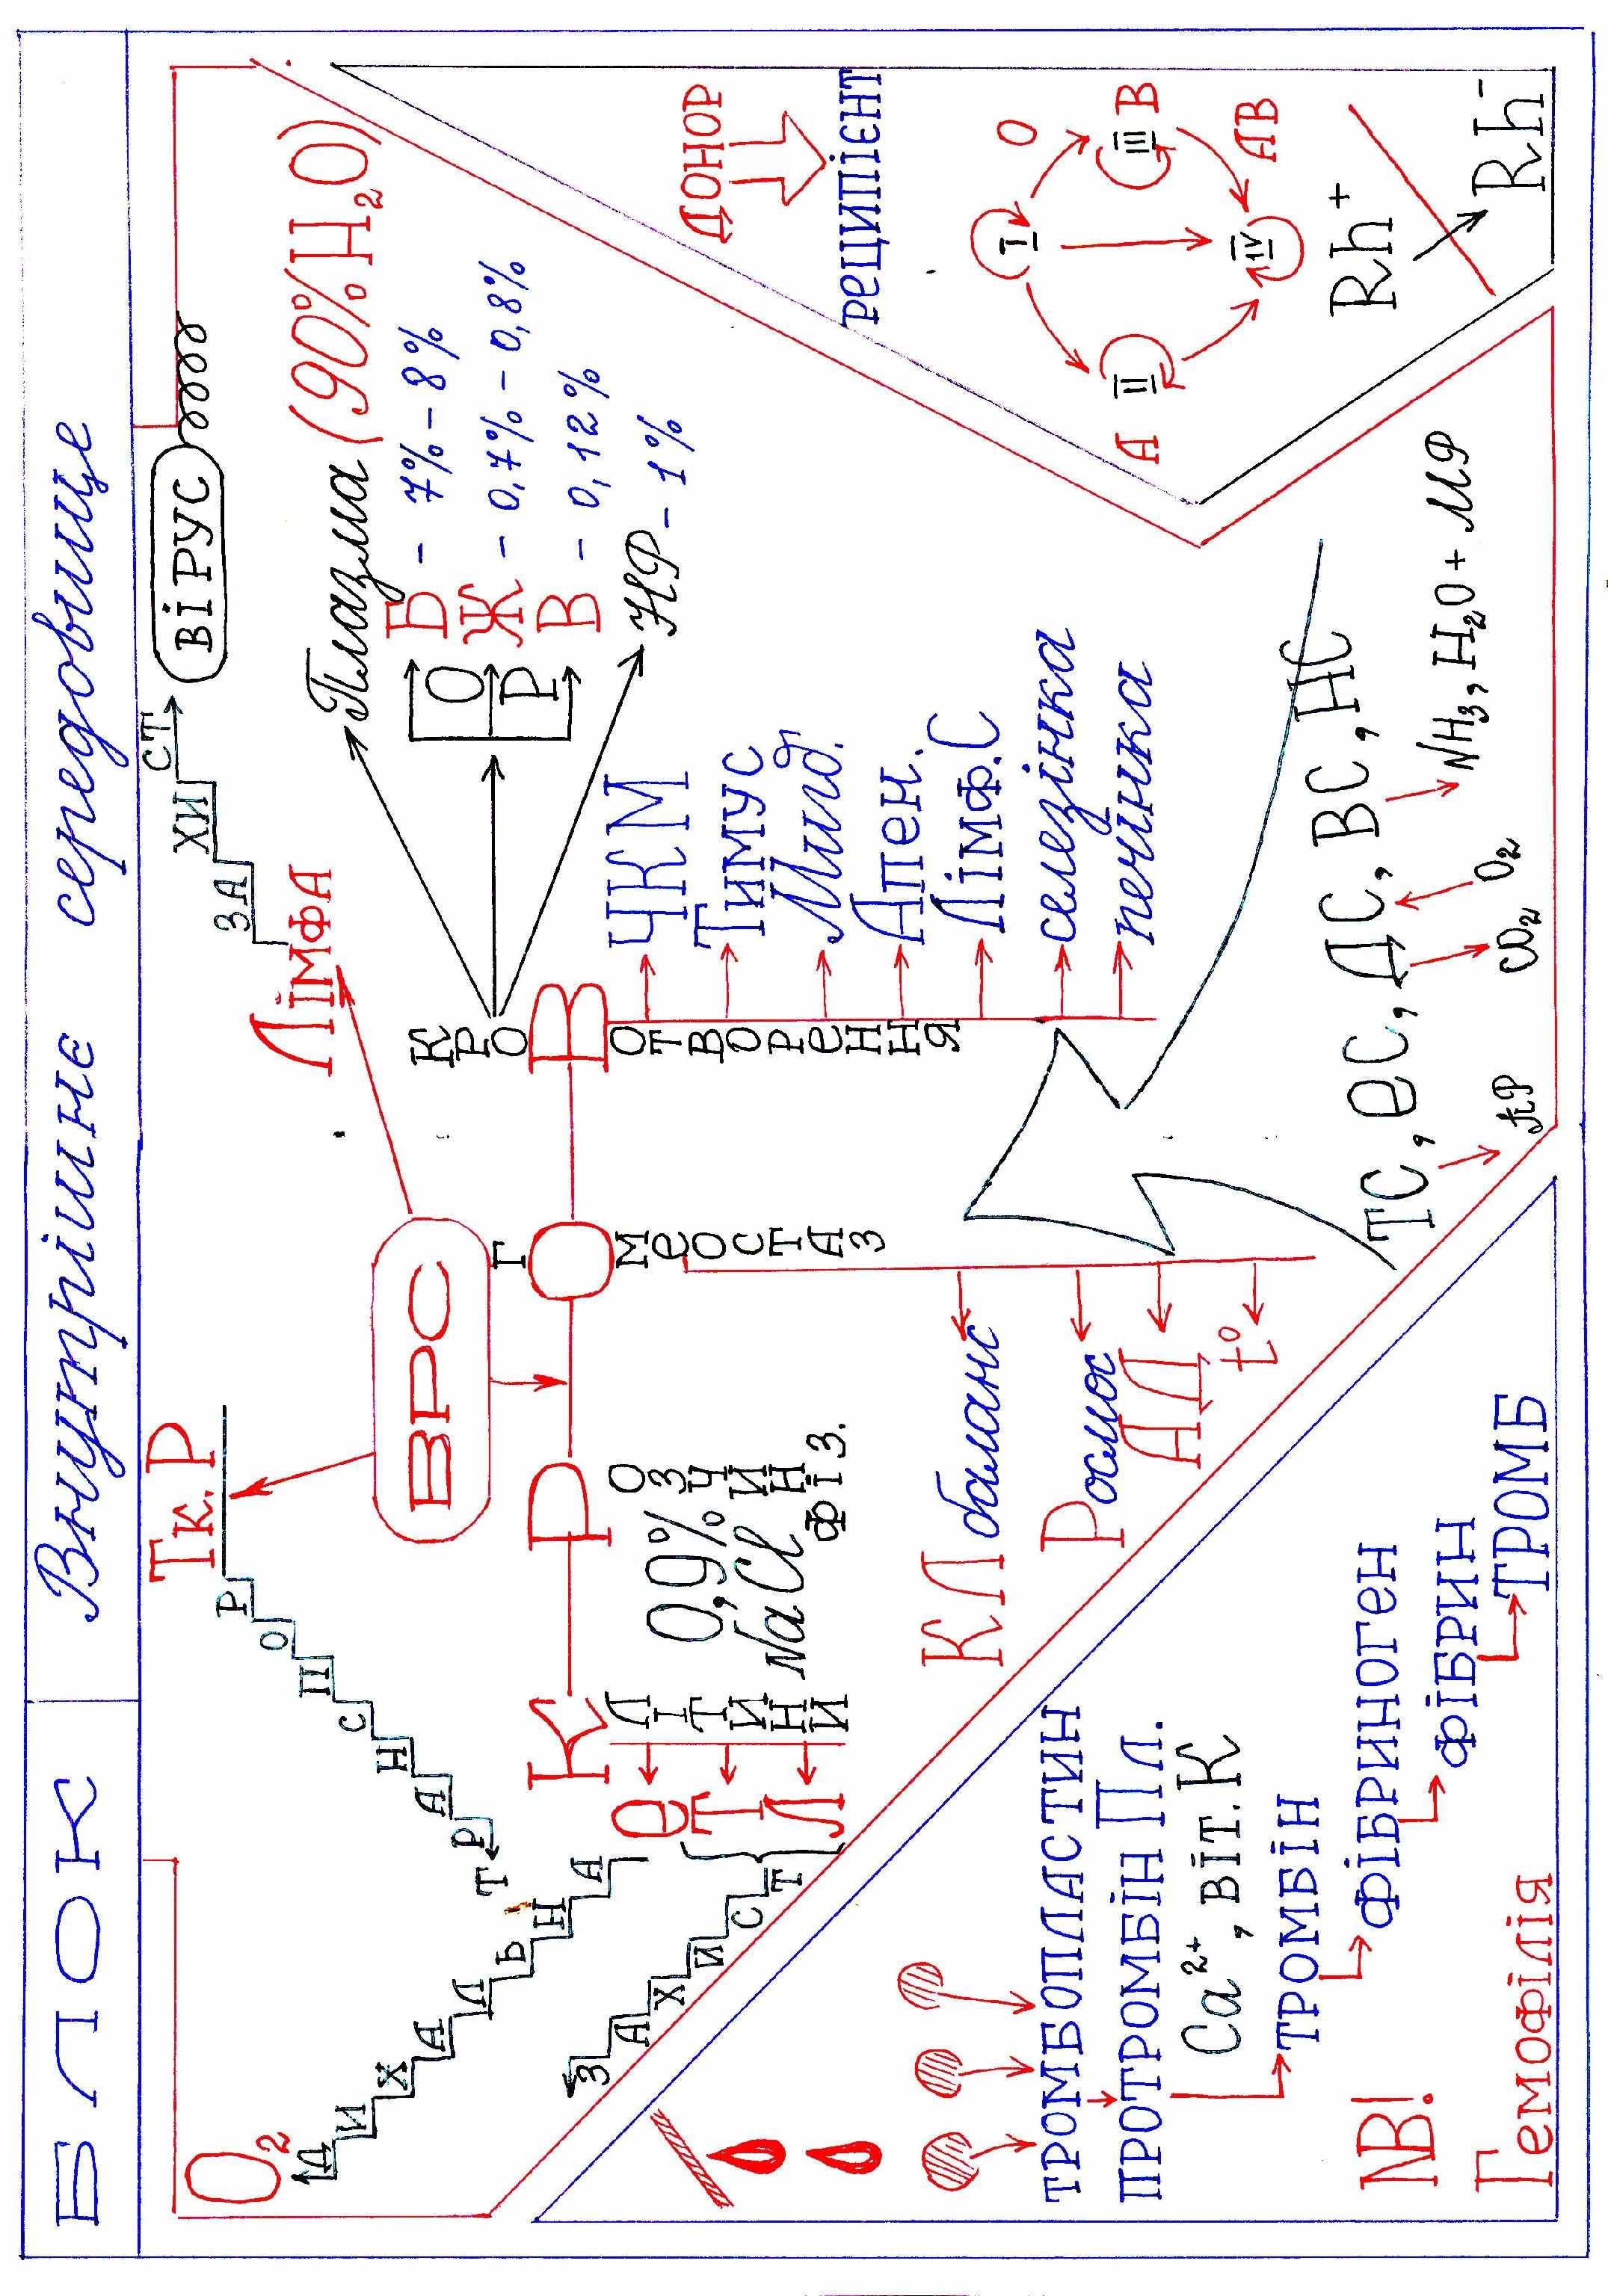 БЛОК Внутрішнє середовище
O₂
ДИХАЛЬНА
ТРАНСПОР
Тк.Р
ВРС
Лімфа
ЗАХИСТ
ВІРУС
КРОВ
КРОВотворення
ГОмеостаз
Клітини
е
Т
Л
ЗАХИСТ
0,9%
NaCl
фіз.
розчин
Плазма (90% H₂O)
ОР
Б - 7% - 8%
Ж - 0,7% - 0,8%
В - 0,12%
НР - 1%
ЧКМ
Тимус
Мигд.
Апен.
Лімф.С
селезінка
печінка
КЛ баланс
Росмос
АД
t°
ТС, еС, ДС, ВС, НС
ПР
CO₂
O₂
NH₃, H₂O + МР
ТРОМБОПЛАСТИН
ПРОТРОМБІН Пл.
Ca²⁺, ВІТ. К
ТРОМБІН
ФІБРИНОГеН
ФІБРИН
ТРОМБ
NB!
Гемофілія
ДОНОР
РеЦИПІЄНТ
I
O
A
II
III
B
IV
AB
Rh⁺
Rh⁻